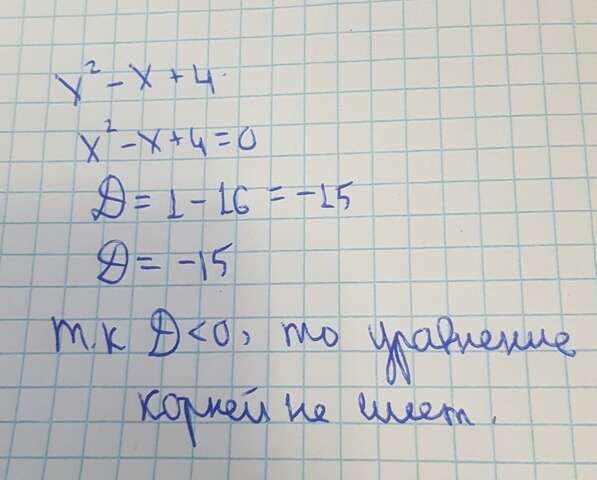 x² - x + 4.
x² - x + 4 = 0
D = 1 - 16 = -15
D = -15
т.к D < 0, то уравнение
корней не имеет.